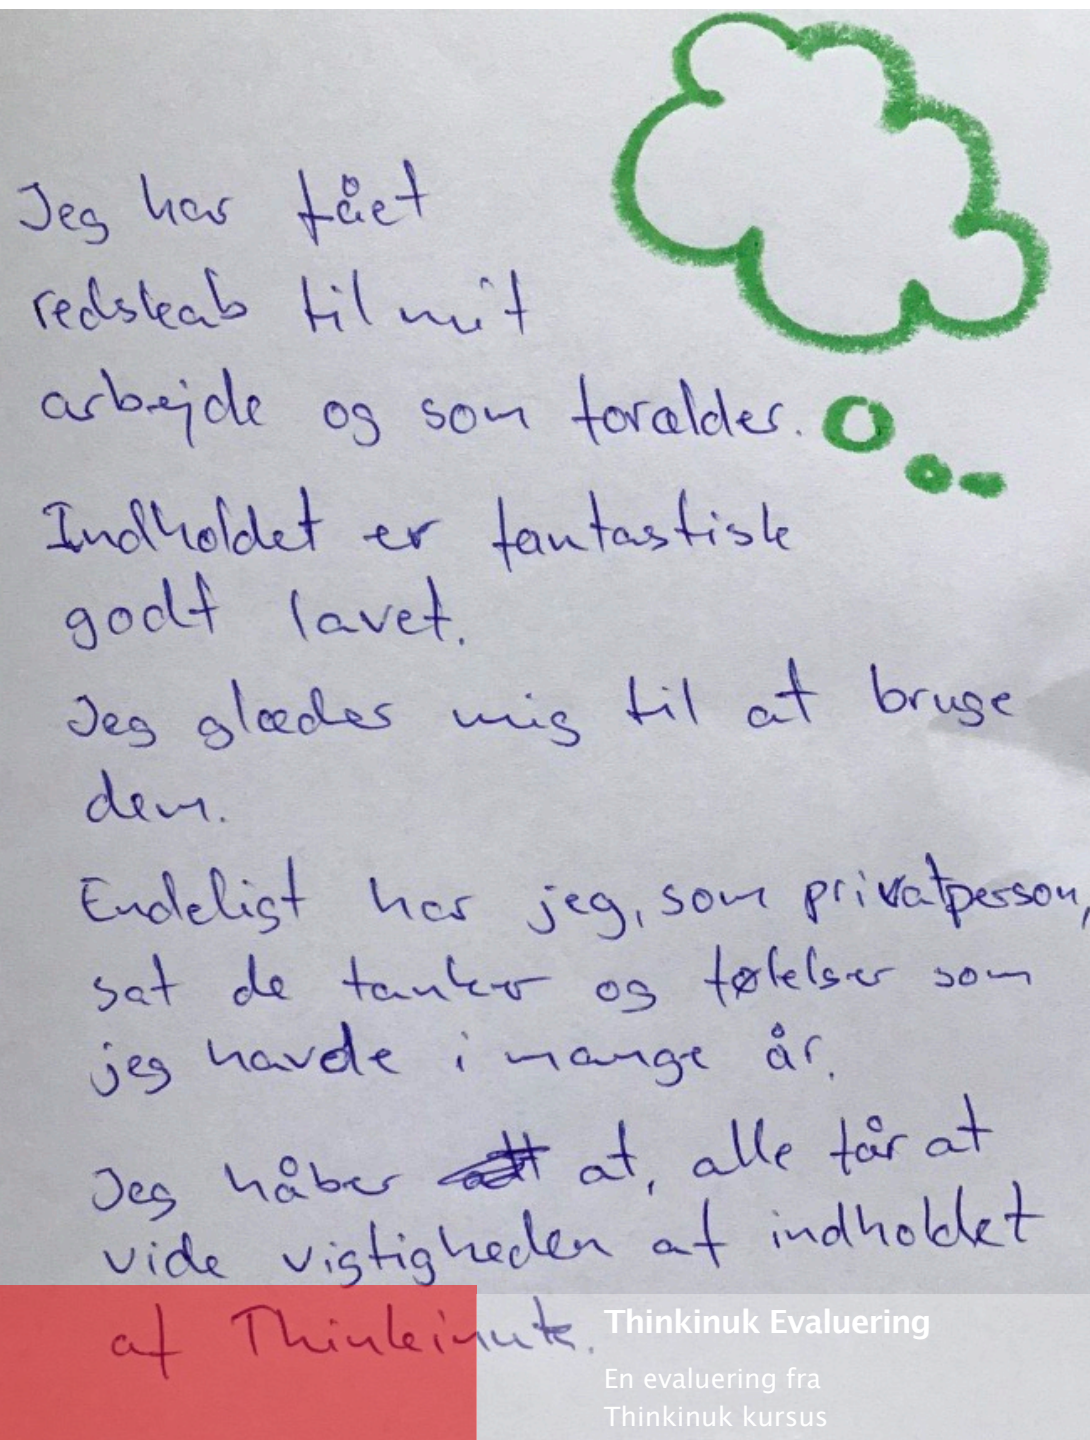 Jeg har fået
redskab til mit
arbejde og som forælder.
Indholdet er fantastisk
godt lavet.
Jeg glæder mig til at bruge
dem.
Endeligt har jeg, som privatperson,
sat de tanker og følelser som
jeg havde i mange år.
Jeg håber at, alle får at
vide vigtigheden af indholdet
af Thinkinuk.
Thinkinuk Evaluering
En evaluering fra
Thinkinuk kursus